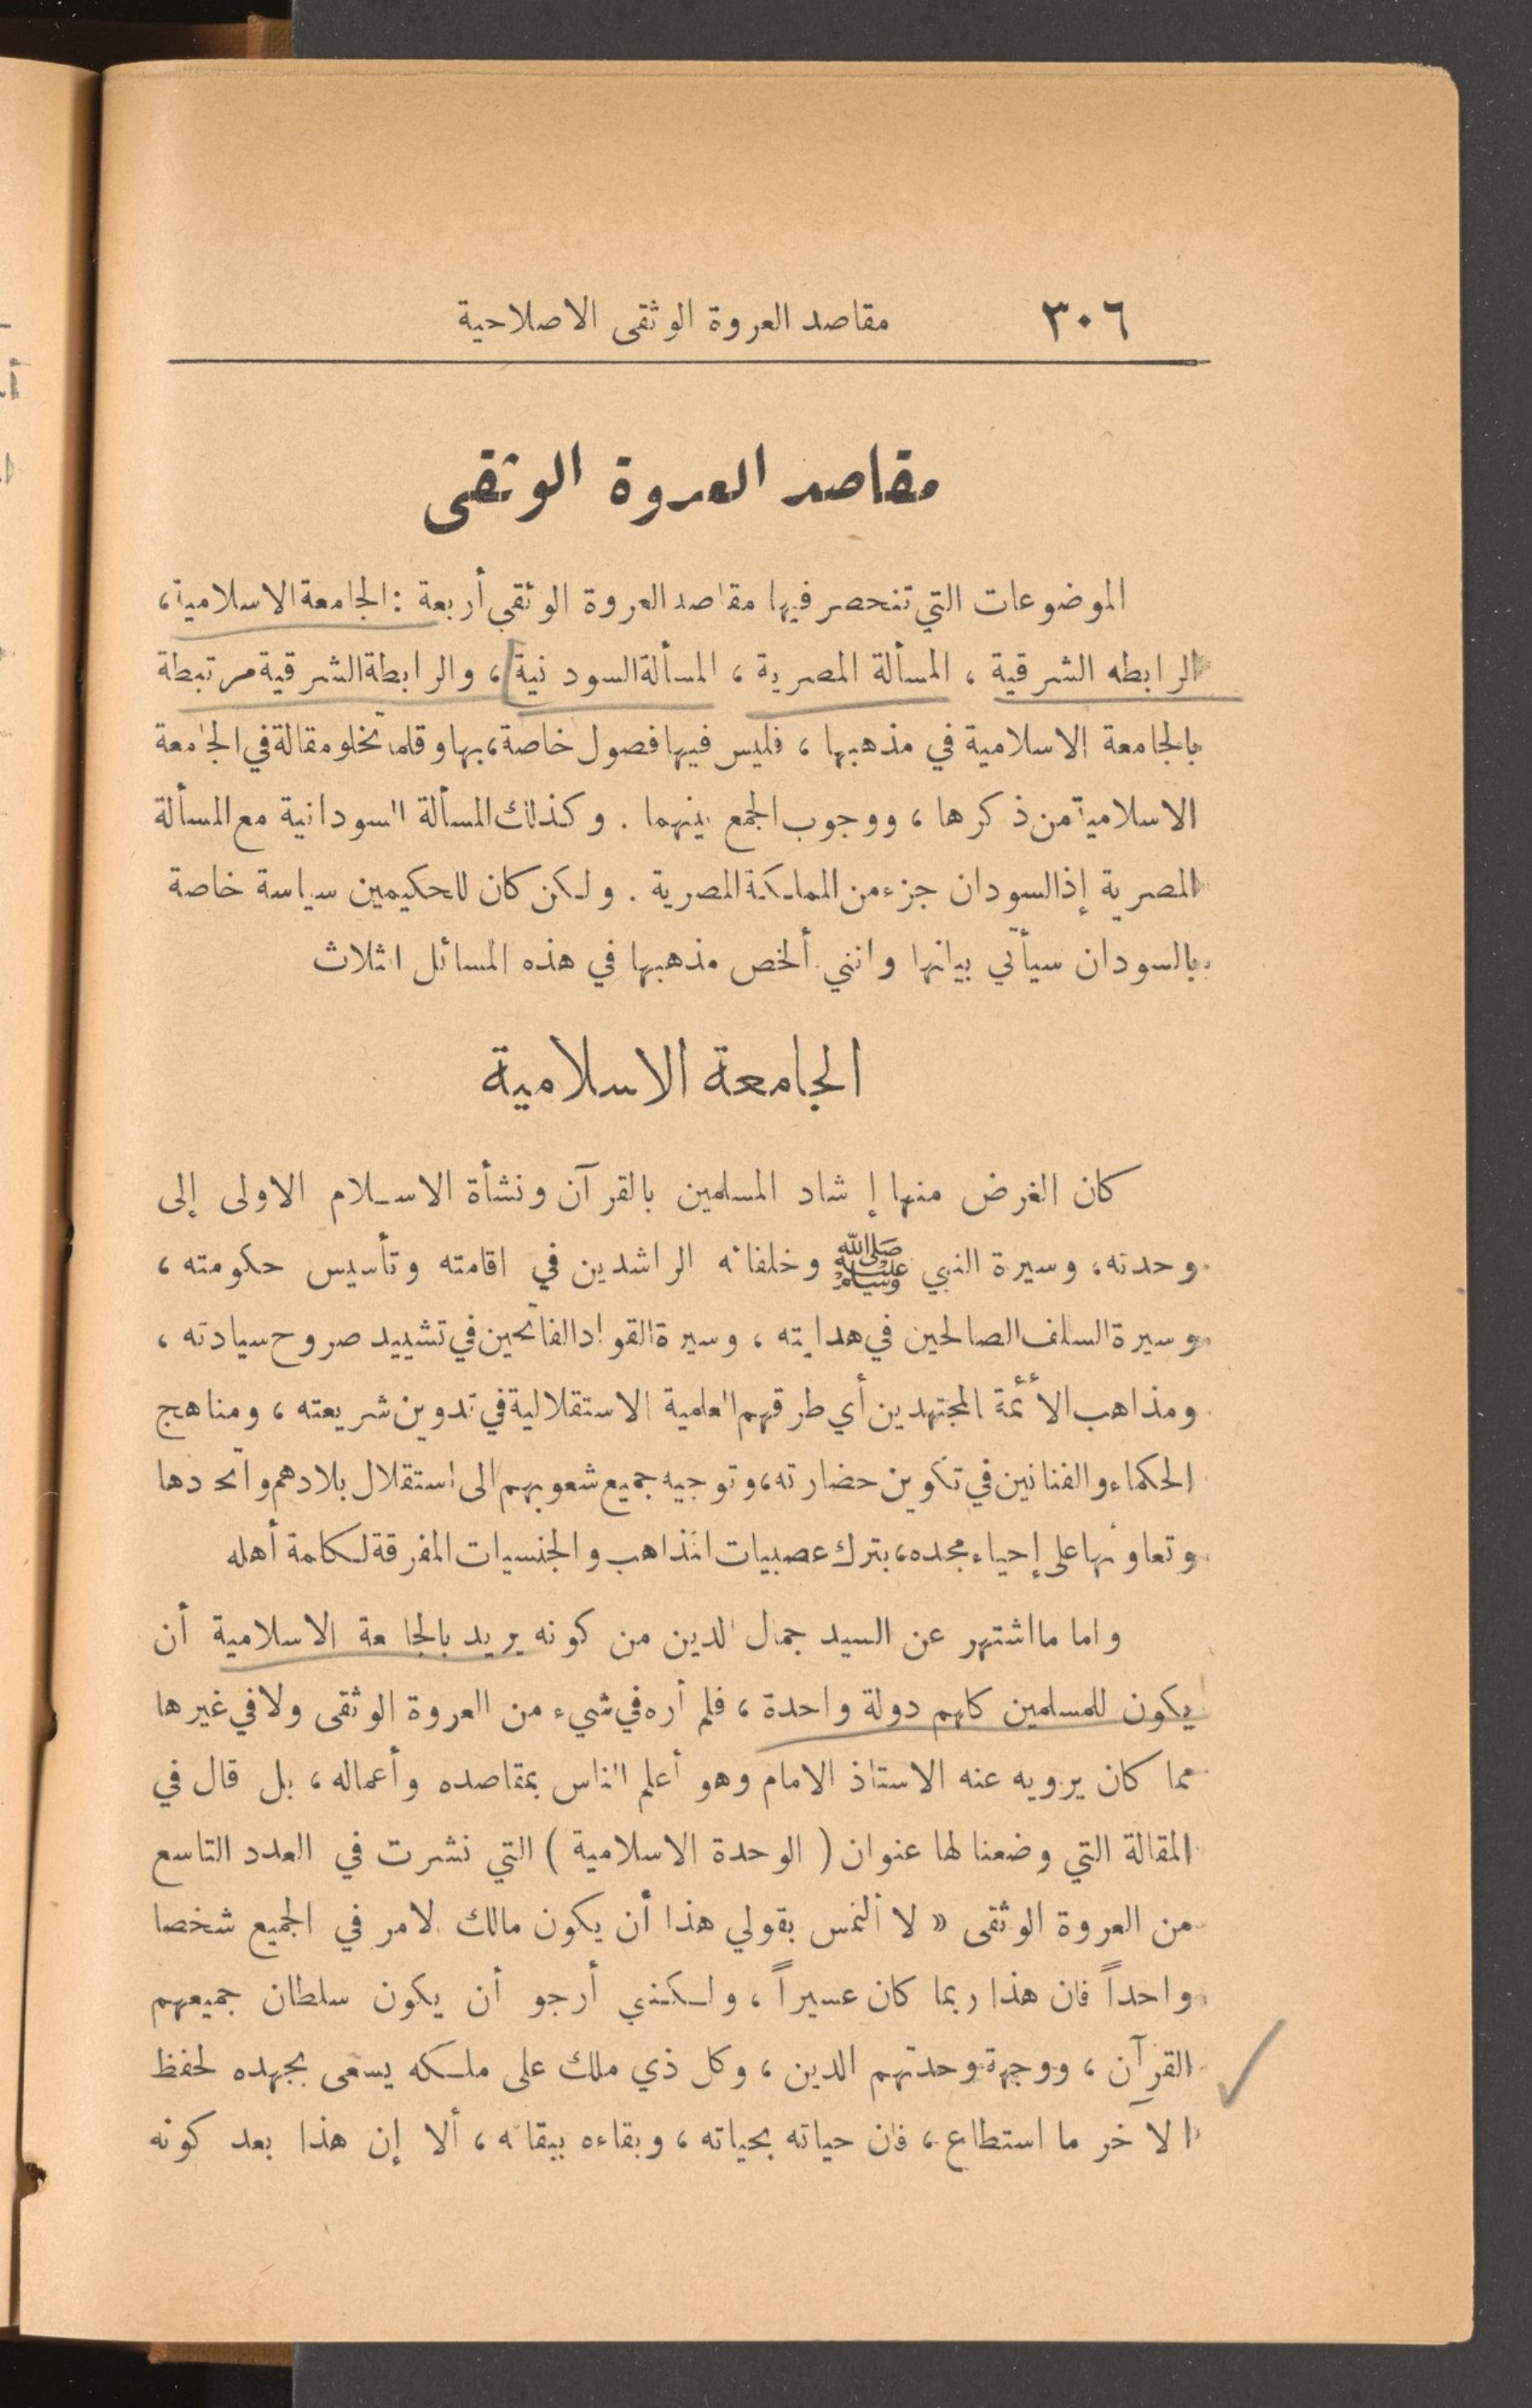 ٣٠٦ مقاصد العروة الوثقى الاصلاحية
مقاصد العروة الوثقى
الموضوعات التي تنحصر فيها مقاصد العروة الوثقى أربعة : الجامعة الاسلامية ،
الرابطه الشرقية ، المسألة المصرية ، المسألة السودنية ، والرابطة الشرقية مرتبطة
بالجامعة الاسلامية في مذهبها ، فليس فيها فصول خاصة ، بها وقلما تخلو مقالة في الجامعة
الاسلامية من ذكرها ، ووجوب الجمع بينهما . وكذلك المسألة السودانية مع المسألة
المصرية إذ السودان جزء من المملكة المصرية . ولكن كان للحكيمين سياسة خاصة
بالسودان سيأتي بيانها وانني ألخص مذهبها في هذه المسائل الثلاث
الجامعة الاسلامية
كان الغرض منها إ شاد المسلمين بالقرآن ونشأة الاسلام الاولى إلى
وحدته ، وسيرة النبي ﷺ وخلفائه الراشدين في اقامته وتأسيس حكومته ،
وسيرة السلف الصالحين في هدايته ، وسيرة القواد الفاتحين في تشييد صروح سيادته ،
ومذاهب الأئمة المجتهدين أي طرقهم العلمية الاستقلالية في تدوين شريعته ، ومناهج
الحكماء والفنانين في تكوين حضارته ، وتوجيه جميع شعوبهم الى استقلال بلادهم واتحادها
وتعاونها على إحياء مجده ، بترك عصبيات المذاهب والجنسيات المفرقة لكلمة أهله
واما ما اشتهر عن السيد جمال الدين من كونه يريد بالجامعة الاسلامية أن
يكون للمسلمين كلهم دولة واحدة ، فلم أره في شيء من العروة الوثقى ولا في غيرها
مما كان يرويه عنه الاستاذ الامام وهو أعلم الناس بمقاصده وأعماله ، بل قال في
المقالة التي وضعنا لها عنوان ( الوحدة الاسلامية ) التي نشرت في العدد التاسع
من العروة الوثقى « لا ألتمس بقولي هذا أن يكون مالك الامر في الجميع شخصا
واحداً فان هذا ربما كان عسيراً ، ولكنني أرجو أن يكون سلطان جميعهم
القرآن ، ووجهة وحدتهم الدين ، وكل ذي ملك على ملكه يسعى بجهده لحفظ
الآخر ما استطاع ، فان حياته بحياته ، وبقاءه ببقائه ، ألا إن هذا بعد كونه